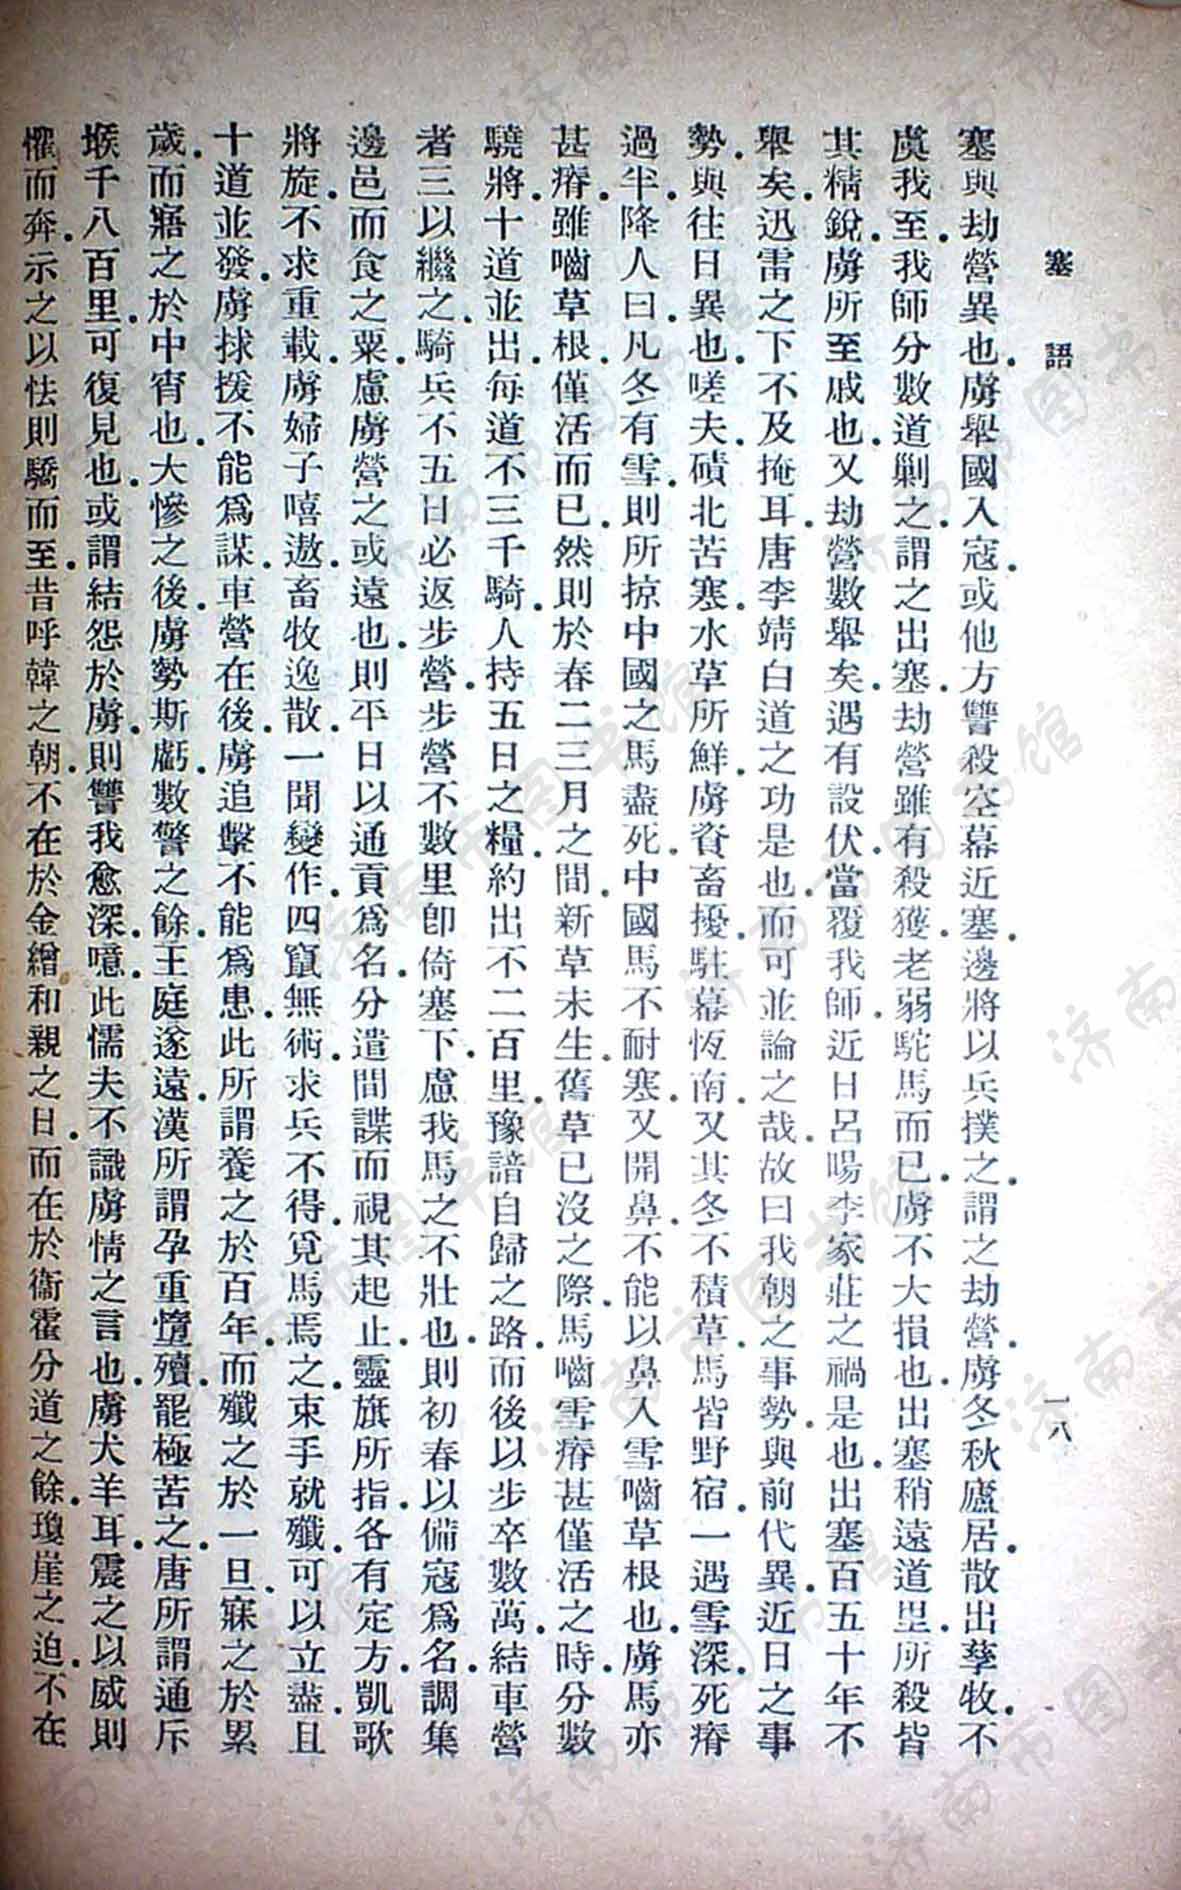 塞語
一八
塞與劫營異也。虜舉國入寇。或他方讐殺。空幕近塞。邊將以兵撲之。謂之劫營。虜冬秋廬居。散出孳牧。不
虞我至。我師分數道剿之。謂之出塞。劫營雖有殺獲。老弱駝馬而已。虜不大損也。出塞稍遠道里。所殺皆
其精銳。虜所至戚也。又劫營數舉矣。遇有設伏。當覆我師。近日呂喝李家莊之禍是也。出塞百五十年不
舉矣。迅雷之下。不及掩耳。唐李靖白道之功是也。而可並論之哉。故曰我朝之事勢。與前代異。近日之事
勢。與往日異也。嗟夫。磧北苦寒。水草所鮮。虜資畜擾。駐幕恆南。又其冬不積草。馬皆野宿。一遇雪深。死瘠
過半。降人曰。凡冬有雪。則所掠中國之馬盡死。中國馬不耐寒。又開鼻。不能以鼻入雪嚙草根也。虜馬亦
甚瘠。雖嚙草根。僅活而已。然則於春二三月之間。新草未生。舊草已沒之際。馬嚙雪瘠甚僅活之時。分數
驍將。十道並出。每道不三千騎。人持五日之糧。約出不二百里。豫諳自歸之路。而後以步卒數萬。結車營
者三以繼之。騎兵不五日必返步營。步營不數里卽倚塞下。慮我馬之不壯也。則初春以備寇爲名。調集
邊邑而食之粟。慮虜營之或遠也。則平日以通貢爲名。分遣間諜而視其起止。靈旗所指。各有定方。凱歌
將旋。不求重載。虜婦子嘻遨。畜牧逸散。一聞變作。四竄無術。求兵不得。覓馬焉之。束手就殲。可以立盡。且
十道並發。虜捄援不能爲謀。車營在後。虜追擊不能爲患。此所謂養之於百年。而殲之於一旦。寐之於累
歲。而寤之於中宵也。大慘之後。虜勢斯虧。數警之餘。王庭遂遠。漢所謂孕重墮殰。罷極苦之。唐所謂通斥
堠千八百里。可復見也。或謂結怨於虜。則讐我愈深。噫。此懦夫不識虜情之言也。虜犬羊耳。震之以威則
懼而奔。示之以怯則驕而至。昔呼韓之朝。不在於金繒和親之日。而在於衞霍分道之餘。瓊崖之迫。不在